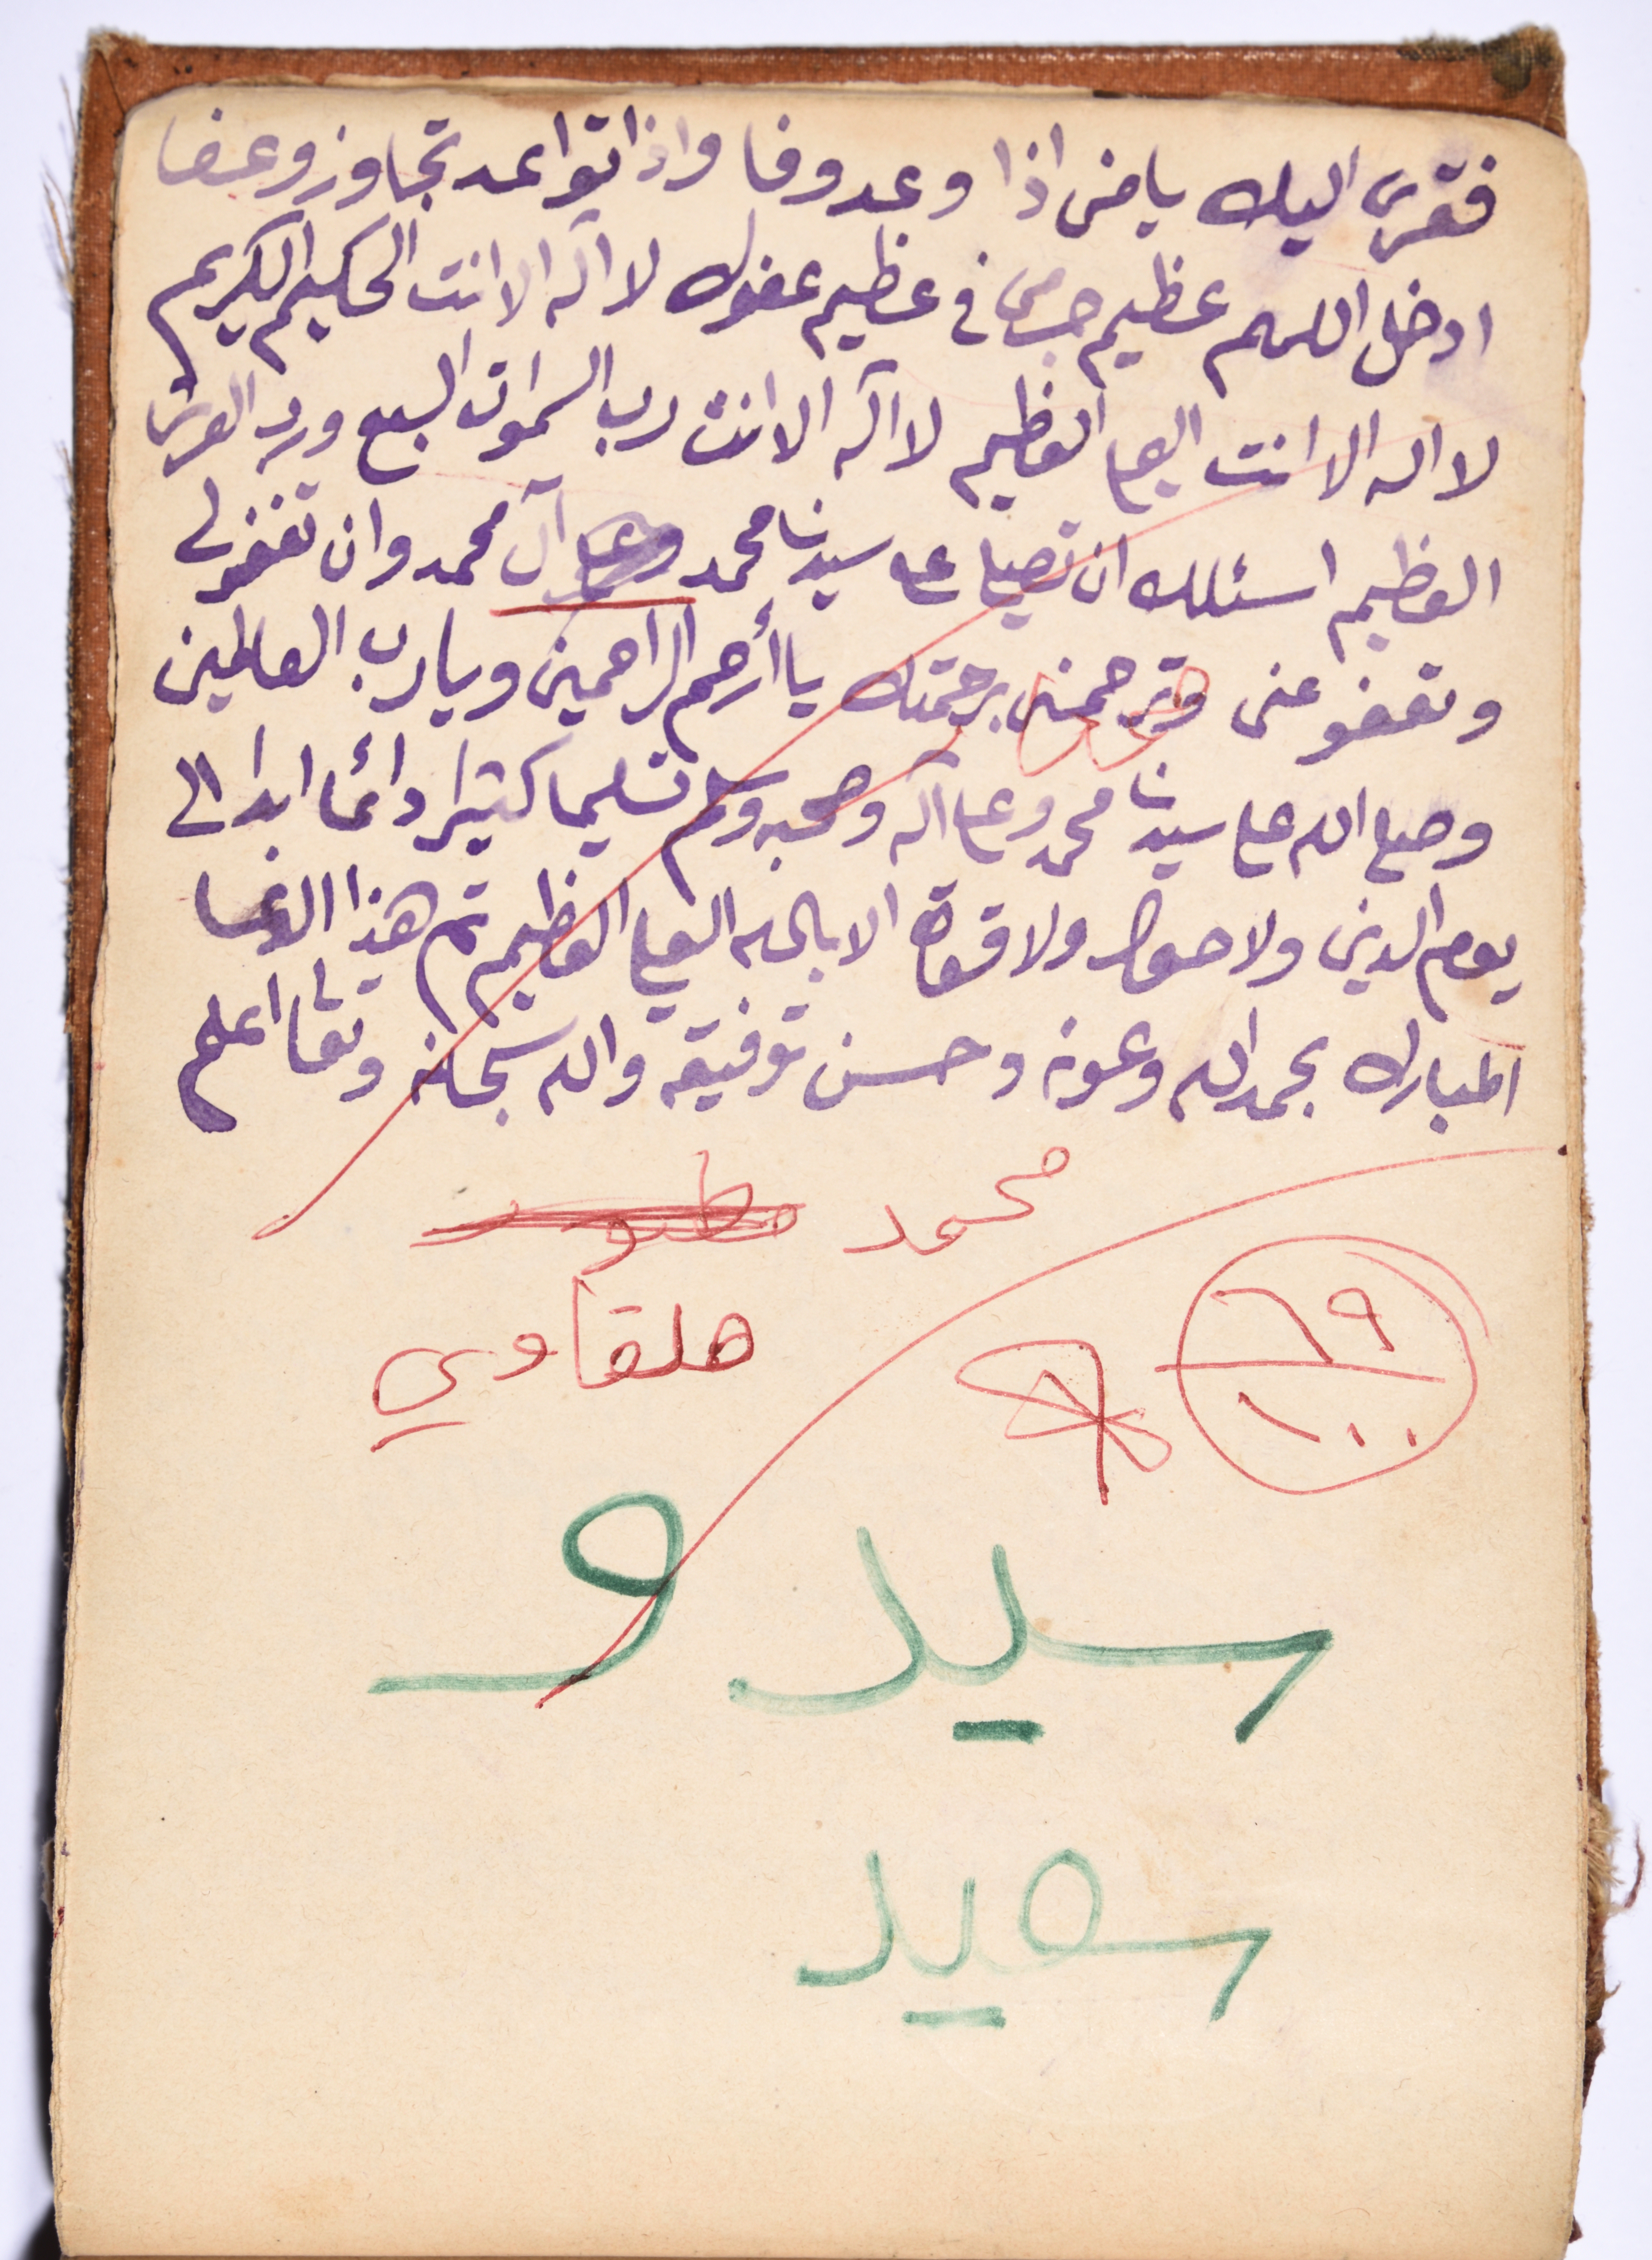 فقرى اليك يا من اذا وعد وفا واذا تواعد تجاوز وعفا
ادخل اللهم عظيم جرمى فى عظيم عفوك لا آله الا انت الحكيم الكريم
لا اله الا انت العلي العظيم لا آله الا انت رب السموات السبع ورب العرش
العظيم اسئلك ان تصلي على سيدنا محمد وعلى آل محمد وان تغفر لي
وتعفو عنى وترحمنى برحمتك يا أرحم الراحمين ويا رب العالمين
وصلى الله على سيدنا محمد وعلى آله وصحبه وسلم تسليما كثيرا دائما ابدا الى
يوم الدين ولا حول ولا قوة الا بالله العلي العظيم تم هذا الدعا
المبارك بحمد الله وعونه وحسن توفيقه والله سبحانه وتعالى اعلم
محمد
هلقاوي
٦٩
١٠٠
سيد و
سعيد